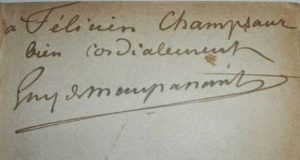 à Félicien Champsaur
bien cordialement
Guy de Maupassant